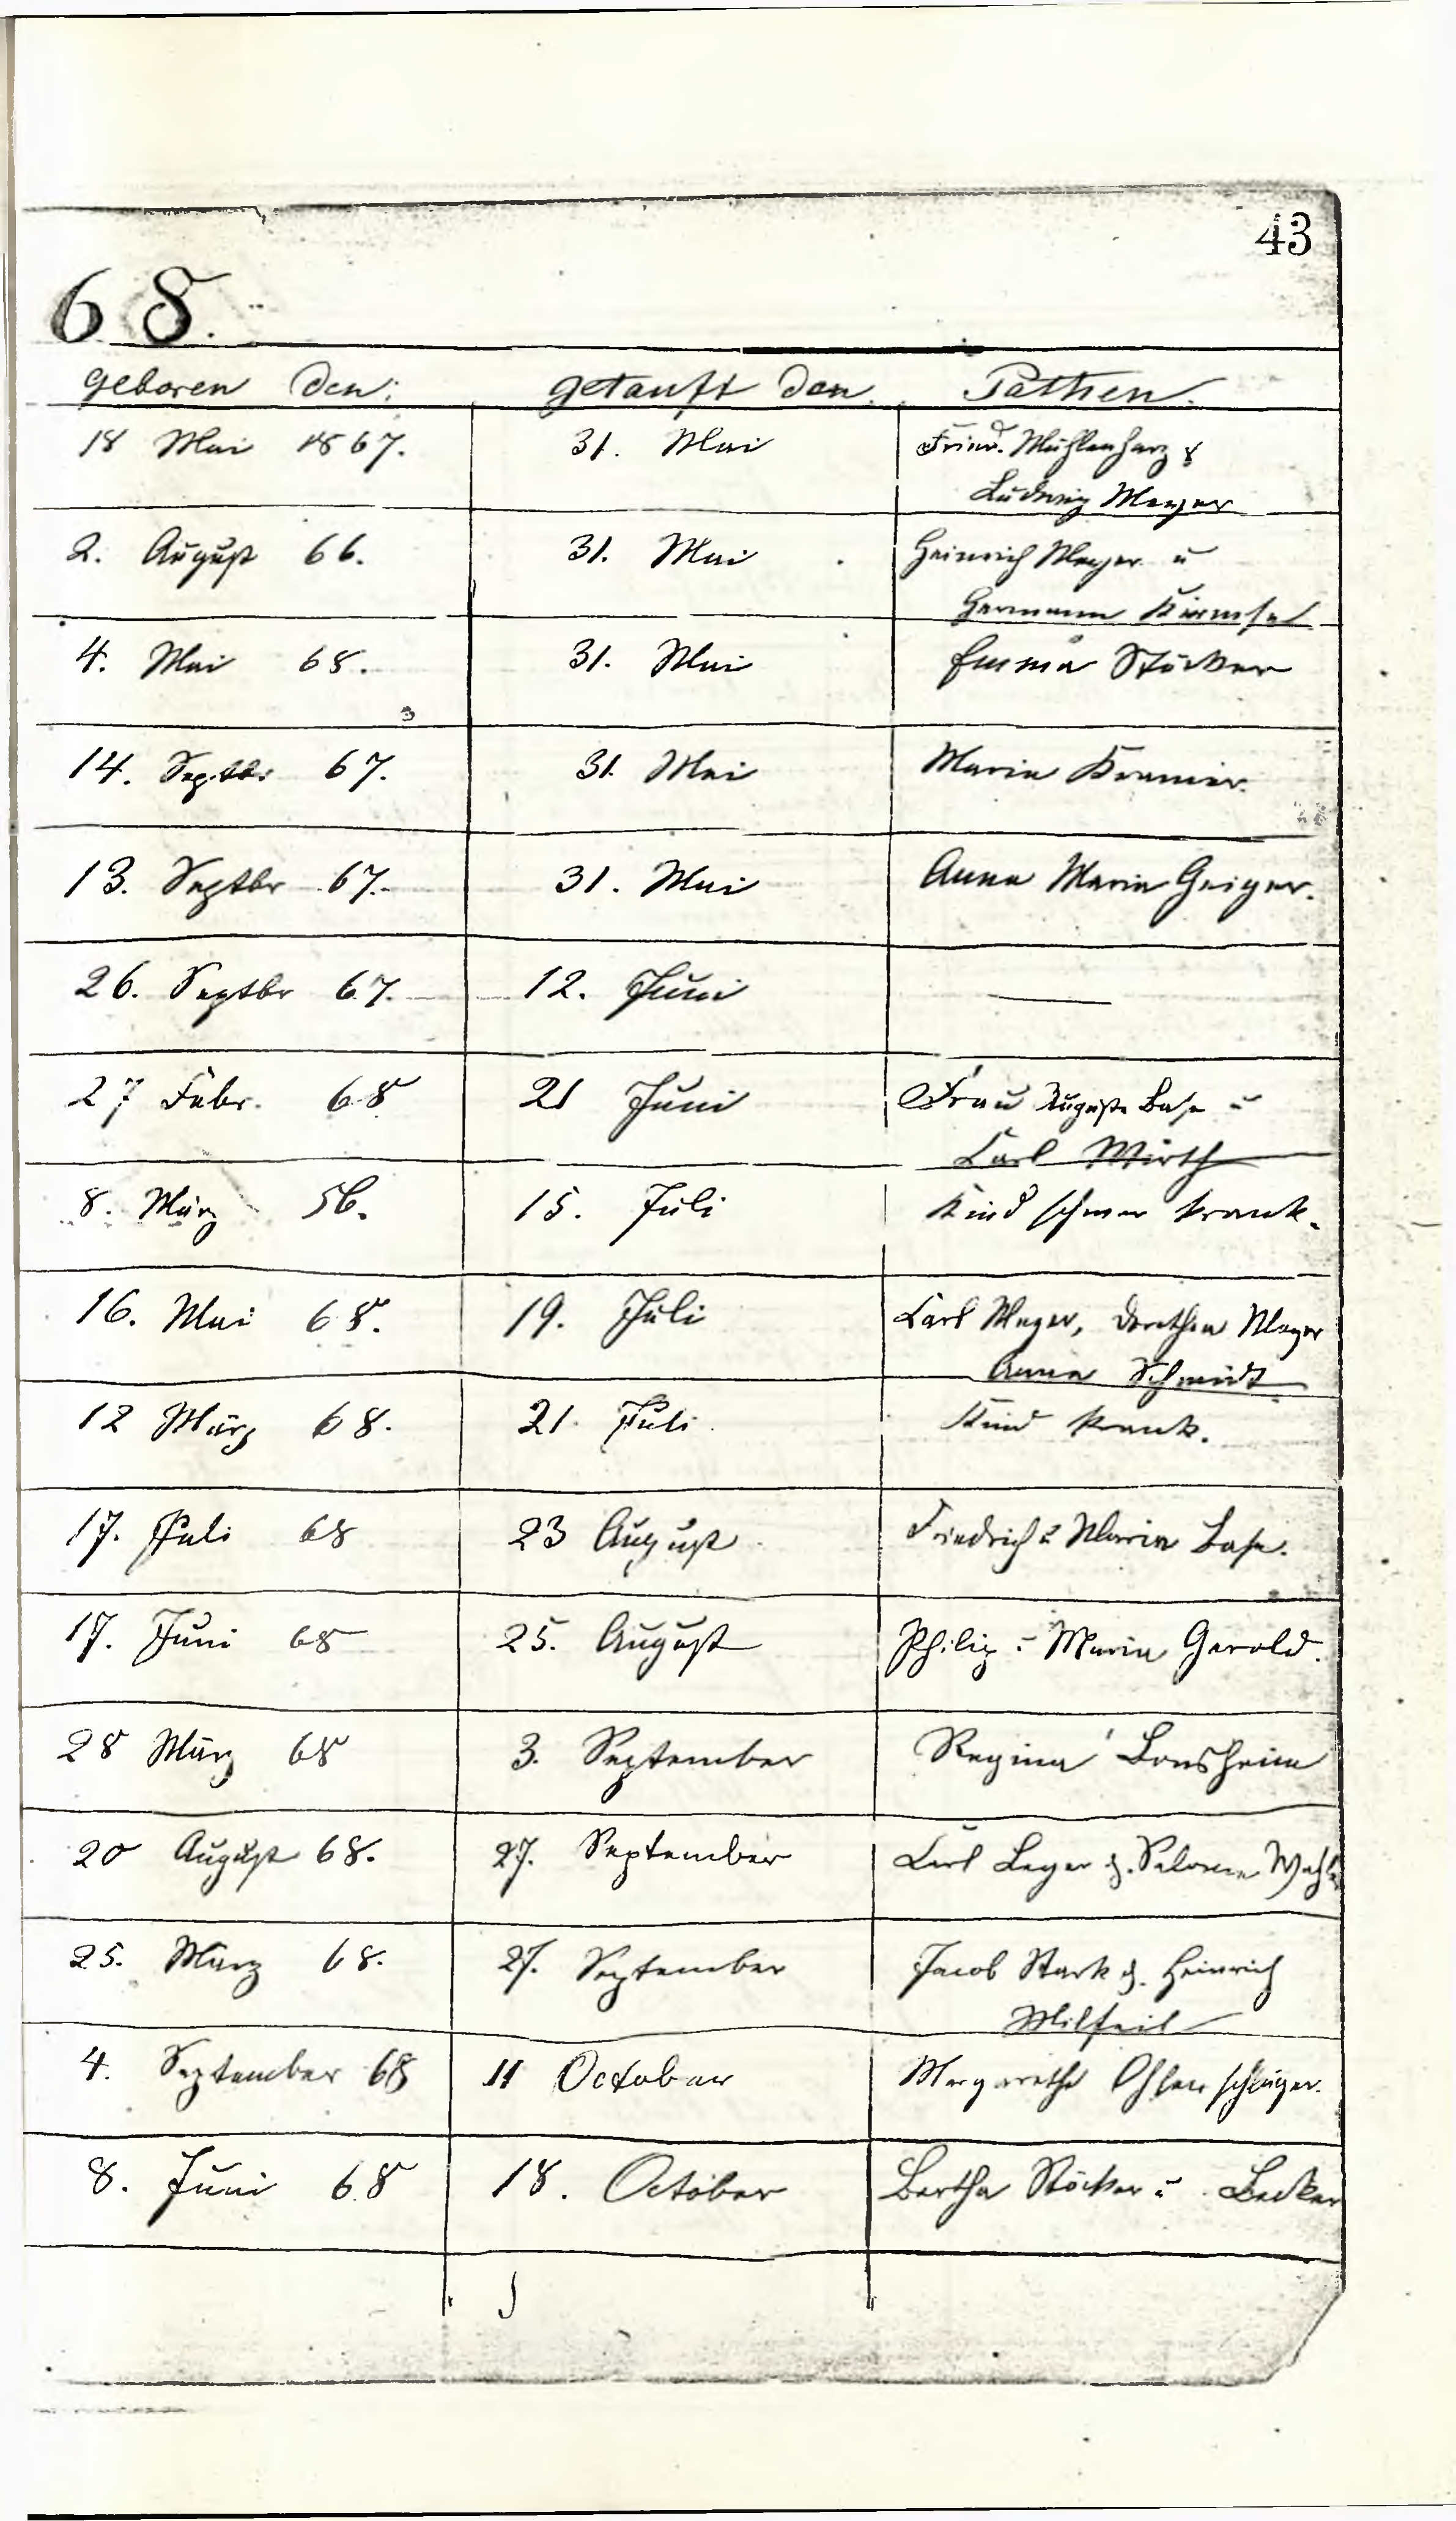 43
68.
geboren den: getauft den. Pathen.
18 Mai 1867. 31. Mai Friedr. Mühlenharz &
Ludwig Meyer
2. August 66. 31. Mai Heinrich Meyer u
Hermann
4. Mai 68. 31. Mai Emma Stöcker
14. Septbr 67. 31. Mai Maria Kramer.
13. Septbr 67. 31. Mai Anna Maria Geiger.
26. Septbr 67. 12. Juni —
27 Febr. 68 21 Juni Frau Auguste Base u
Carl Wirth
8. März 56. 15. Juli Kind schwer krank.
16. Mai 68. 19. Juli Carl Meyer, Dorothea Meyer
Anna Schmidt
12 März 68. 21. Juli Kind krank.
17. Juli 68 23 August Friedrich u Maria Base.
17. Juni 68 25. August Philip u Maria Gerold.
28 März 68 3. September Regina Bonsheim
20 August 68. 27. September Carl Leger &. Salome
25. März 68. 27. September Jacob Stark &. Heinrich
4. September 68 11 October Margarethe Ohlenschläger.
8. Juni 68 18. October Bertha Stöcker u Becker